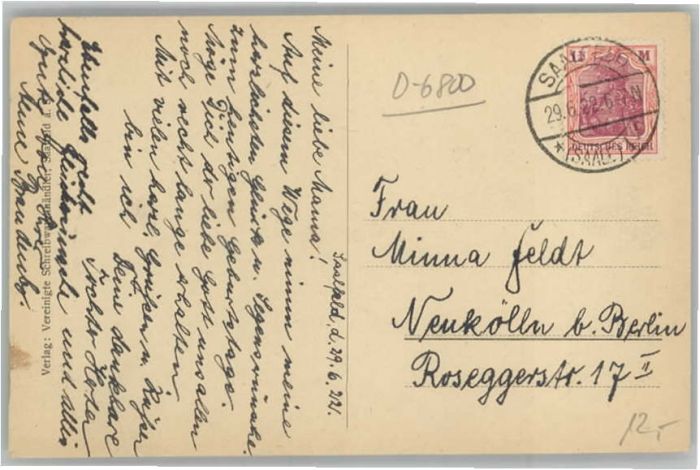 Saalfeld, d. 29. 6. 22.
Meine liebe Mama!
Auf diesem Wege nimm meine
herzlichsten Glück- u. Segenswünsche
zum heutigen Geburtstage.
Möge Dich der liebe Gott uns allen
noch recht lange erhalten
Mit vielen herzl. Grüßen u. Küßen
bin ich Deine dankbare
Tochter
Ebenfalls recht
herzliche Glückwünsche und alles
Gute
Verlag: Vereinigte Schreibwarenhändler, Saalfeld a. S.
D-6800
SAALFELD
29.6.22
* (SAALE)
M
DEUTSCHES REICH
Frau
Minna Feldt
Neukölln b. Berlin
Roseggerstr. 17 II
12,-